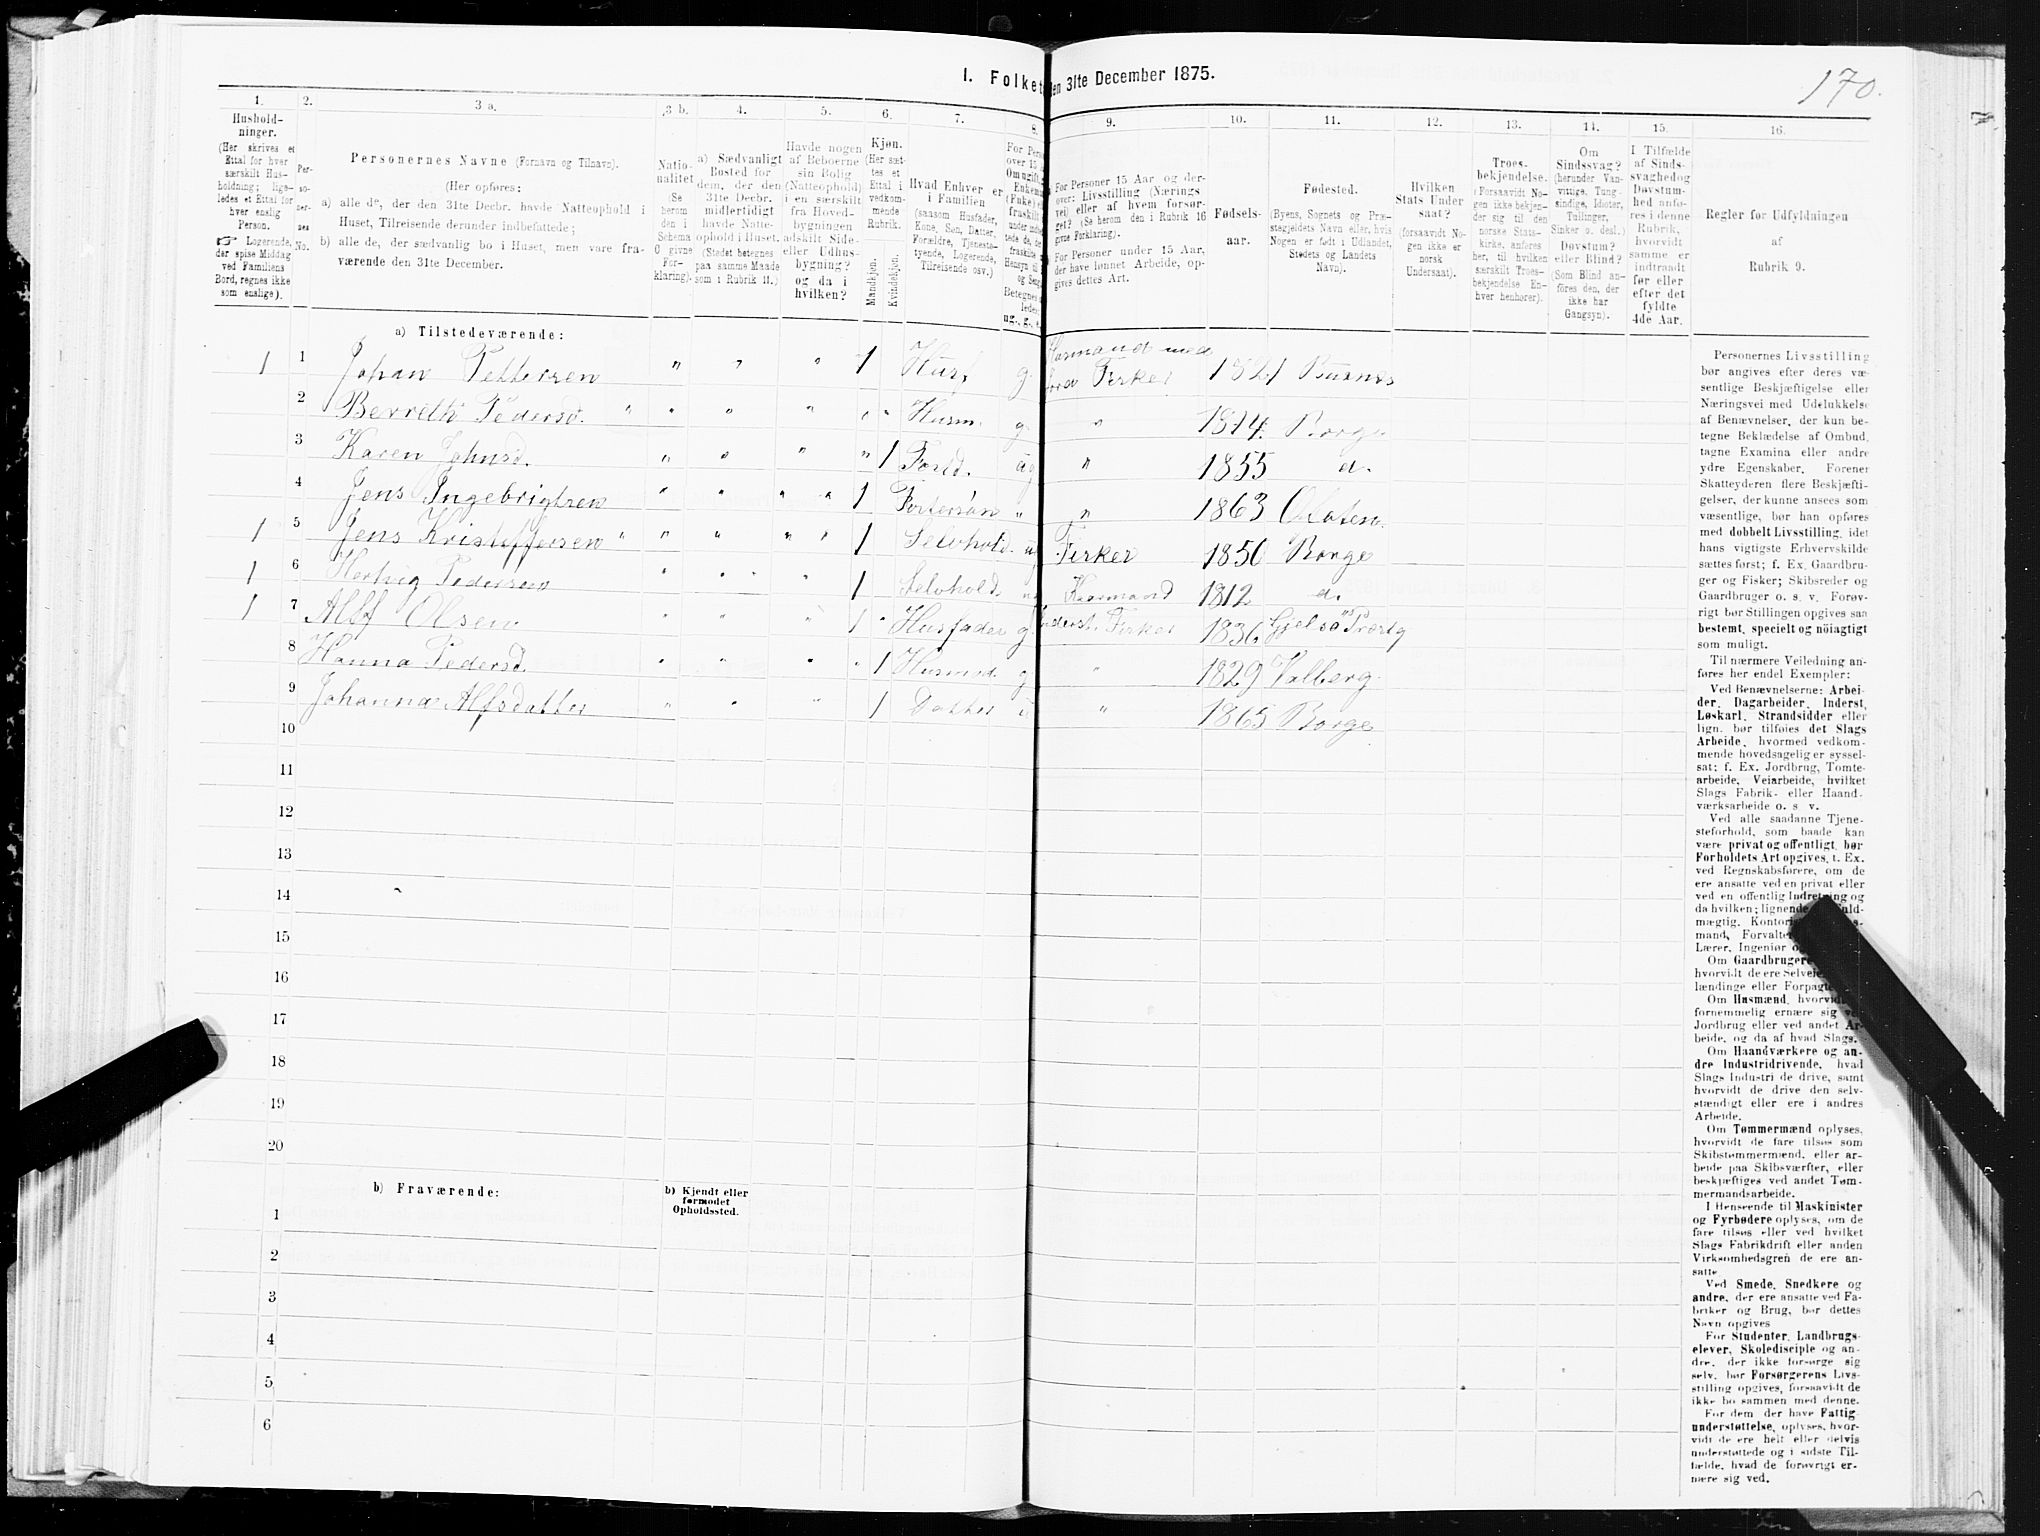 170.
I. Folket
en 31te December 1875.
1. 2. 3 a. 3 b. 4. 5. 6. 7. 8. 9. 10. 11. 12. 13. 14. 15. 16.
Hushold-
ninger.
(Her skrives et
Ettal for hver
særskilt Hus-
holdning; lige-
ledes et Ettal for
hver enslig
Person.
☞ Logerende,
der spise Middag
ved Familiens
Bord, regnes ikke
som enslige).
Per-
so-
ner-
nes
No.
Personernes Navne (Fornavn og Tilnavn).
(Her opføres:
a) alle de, der den 31te Decbr. havde Natteophold i
Huset, Tilreisende derunder indbefattede;
b) alle de, der sædvanlig bo i Huset, men vare fra-
værende den 31te December.
Natio-
nalitet
(Se
herom
den i
Schema
C givne
For-
klaring).
a) Sædvanligt
Bosted for
dem, der den
31te Decbr.
midlertidigt
havde Natte-
ophold i Huset.
(Stedet betegnes
paa samme Maade
som i Rubrik 11.)
Havde nogen
af Beboerne
sin Bolig
(Natteophold)
i en særskilt
fra Hoved-
bygningen
adskilt Side-
eller Udhus-
bygning?
og da i
hvilken?
Kjøn.
(Her sæt-
tes et
Ettal i
vedkom-
mende
Rubrik.
Mandkjøn.
Kvindekjøn.
Hvad Enhver er
i Familien
(saasom Husfader,
Kone, Søn, Datter,
Forældre, Tjenestо-
tyende, Logerende,
Tilreisende osv.)
For Personer 15 Aar og der-
over: Livsstilling (Nærings-
vei) eller af hvem forsør-
get? (Se herom den i Rubrik 16
givne Forklaring).
For Personer under 15 Aar,
der have lønnet Arbeide, op-
gives dettes Art.
Fødsels-
aar.
Fødested.
(Byens, Sognets og Præ-
stegjeldets Navn eller, hvis
Nogen er født i Udlandet,
Stedets og Landets
Navn).
Hvilken
Stats Under
saat?
(forsaavidt No-
gen ikke er
norsk
Undersaat).
Troes-
bekjendelse.
(Forsaavidt No-
gen ikke bekjen-
der sig til den
norske Stats-
kirke, anføres
her, til hvilken
særskilt Troes-
bekjendelse En-
hver henhører).
Om
Sindssvag?
(herunder Van-
vittige, Tung-
sindige, Idioter,
Tullinger,
Sinker o. desl.)
Døvstum?
eller Blind?
(Som Blind an-
föres den, der
ikke har
Gangsyn).
I Tilfælde
af Sinds-
svaghed og
Døvstum-
hed anfø-
res i denne
Rubrik,
hvorvidt
samme er
indtraadt
før eller
efter det
fyldte
4de Aar.
Regler før Udfyldningen
af
Rubrik 9.
a) Tilstedeværende:
1 1 Johan Pettersen " " " 1 Husf g. Husmand med
Jord Fisker 1821 Buxnes
2 Berreth Pedersd. " " " " " " Husm. g. " 1814. Borge
3 Karen Johnsd. " " " " 1 Fostd. ug " 1855 d.
4 Jens Ingebrigtsen " " " " 1 Fostersøn " " 1863 Ofoten.
1 5 Jens Kristoffersen " " " " " 1 Selvhold. ug Fisker 1856 Borge
1 6 Hertvig Pedersen " " " " 1 Selvhold Kaarmand 1812 d.
1 7 Alf Olsen " " " 1 " Husfader g. Inderst. Fisker 1836
8 Hanna Pedersd. " " " " 1 Husmod. g " 1829 Valberg
9 Johanna Alfsdatter " " " 1 Datter u " 1865 Borge
10
11
12
13
14
15
16
17
18
19
20
b) Fraværende:
b) Kjendt eller
formodet
Opholdssted.
1
2
3
4
5
6
Personernes Livsstilling
bør angives efter deres væ-
sentlige Beskjæftigelse eller
Næringsvei med Udelukkelse
af Benævnelser, der kun be-
tegne Beklædelse af Ombud,
tagne Examina eller andre
ydre Egenskaber. Forener
Skatteyderen flere Beskjæfti-
gelser, der kunne ansees som
væsentlige, bør han opføres
med dobbelt Livsstilling, idet
hans vigtigste Erhvervskilde
sættes først; f. Ex. Gaardbru-
ger og Fisker; Skibsreder og
Gaardbruger o. s. v. Forøv-
rigt bør Stillingen opgives saa
bestemt, specielt og nöiagtigt
som muligt.
Til nærmere Veiledning an-
føres her endel Exempler:
Ved Benævnelserne: Arbei-
der, Dagarbeider, Inderst,
Løskarl, Strandsidder eller
lign. bør tilføies det Slags
Arbeide, hvormed vedkom-
mende hovedsagelig er syssel-
sat; f. Ex. Jordbrug, Tomte-
arbeide, Veiarbeide, hvilket
Slags Fabrik- eller Haand-
værksarbeide o. s v.
Ved alle saadanne Tjene-
steforhold, som baade kan
være privat og offentligt, bør
Forholdets Art opgives, t. Ex.
ved Regnskabsførere, om de
ere ansatte ved en privat eller
ved en offentlig Indretning og
da hvilken; lignende
mægtig, Kontor
mand, Forvalter
Lærer, Ingeniør
Om Gaardbrugere
hvorvidt de ere Selveie
lændinge eller Forpagte
Om Husmænd, hvorvidt
fornemmelig ernære sig
Jordbrug eller ved andet Ar-
beide, og da af hvad Slags.
Om Haandværkere og an-
dre Industridrivende, hvad
Slags Industri de drive, samt
hvorvidt de drive den selv-
stændigt eller ere i andres
Arbeide.
Om Tømmermænd oplyses,
hvorvidt de fare tilsøs som
Skibstømmermænd, eller ar-
beide paa Skibsværfter, eller
beskjæftiges ved andet Tøm-
mermandsarbeide.
I Henseende til Maskinister
og Fyrbødere oplyses, om de
fare tilsøs eller ved hvilket
Slags Fabrikdrift eller anden
Virksomhedsgren de ere an-
satte
Ved Smede, Snedkere og
andre, der ere ansatte ved Fa-
briker og Brug, bør dettes
Navn opgives
For Studenter, Landbrugs-
elever, Skoledisciple og an-
dre, der ikke forsørge sig
selv, bør Forsørgerens Livs-
stilling opgives, forsaavidt de
ikke bo sammen med denne.
For dem, der have Fattig
understøttelse, oplyses, hvor-
vidt de ere helt eller delvis
understøttede og i sidste Til-
fælde, hvad de forøvrigt er-
nære sig ved.